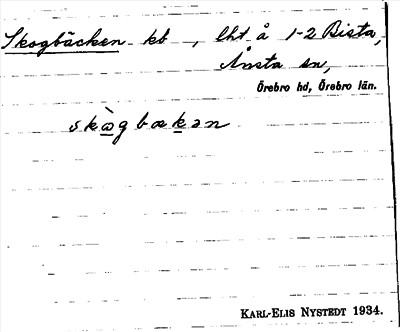 Skogbäcken kb, lht å 1-2 Bista,
Ånsta sn,
Örebro hd, Örebro län.
skògbækən
KARL-ELIS NYSTEDT 1934.